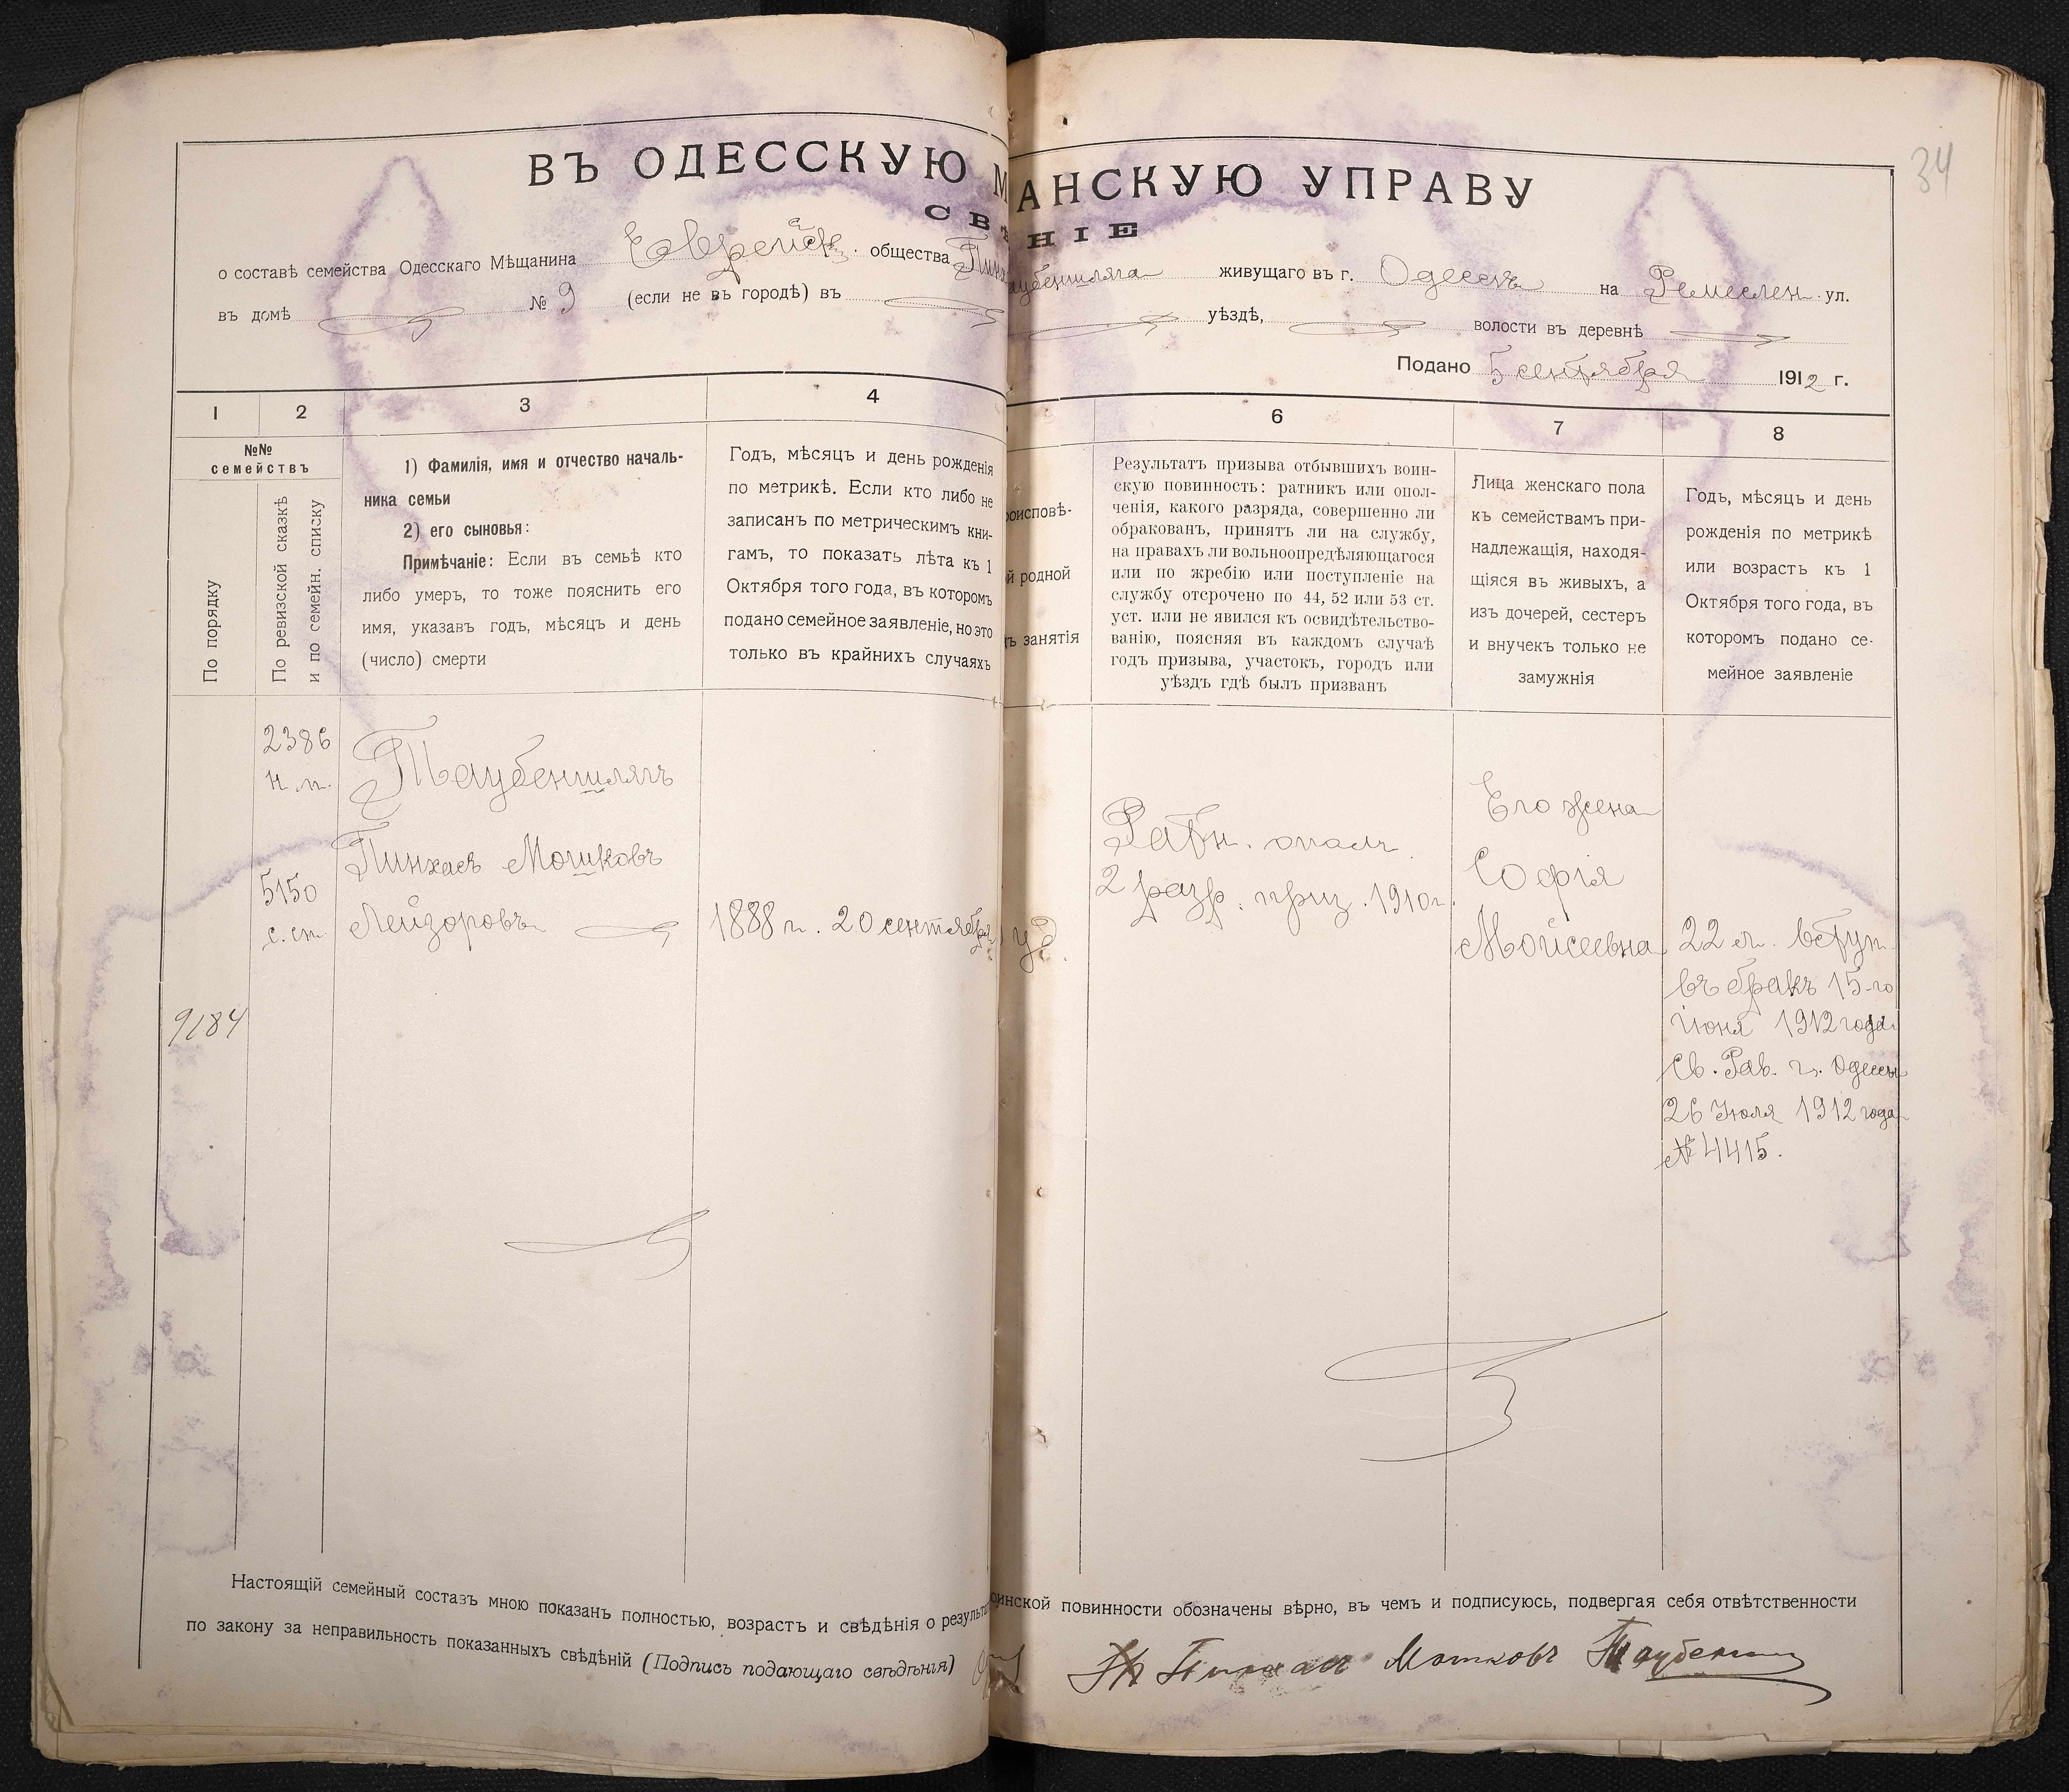 34
ВЪ ОДЕССКУЮ М АНСКУЮ УПРАВУ
СВ НІЕ
о составѣ семейства Одесскаго Мѣщанина Еврейск. общества Пинх аубеншляга живущаго въ г. Одессѣ на Ремеслен. ул.
въ домѣ № 9 (если не въ городѣ) въ уѣздѣ, волости въ деревнѣ
Подано 5 сентября 1912 г.
1 2 3 4 6 7 8
№№
семействъ
По порядку
По ревизской сказкѣ
и по семейн. списку
1) Фамилія, имя и отчество началь-
ника семьи
2) его сыновья:
Примѣчаніе: Если въ семьѣ кто
либо умеръ, то тоже пояснить его
имя, указавъ годъ, мѣсяцъ и день
(число) смерти
Годъ, мѣсяцъ и день рожденія
по метрикѣ. Если кто либо не
записанъ по метрическимъ кни-
гамъ, то показать лѣта къ 1
Октября того года, въ которомъ
подано семейное заявленіе, но это
только въ крайнихъ случаяхъ
роисповѣ-
й родной
ъ занятія
Результатъ призыва отбывшихъ воин-
скую повинность: ратникъ или опол-
ченія, какого разряда, совершенно ли
обракованъ, принятъ ли на службу,
на правахъ ли вольноопредѣляющагося
или по жребію или поступленіе на
службу отсрочено по 44, 52 или 53 ст.
уст. или не явился къ освидѣтельство-
ванію, поясняя въ каждомъ случаѣ
годъ призыва, участокъ, городъ или
уѣздъ гдѣ былъ призванъ
Лица женскаго пола
къ семействамъ при-
надлежащія, находя-
щіяся въ живыхъ, а
изъ дочерей, сестеръ
и внучекъ только не
замужнія
Годъ, мѣсяцъ и день
рожденія по метрикѣ
или возрастъ къ 1
Октября того года, въ
которомъ подано се-
мейное заявленіе
9184
2386
н.п.
5150
с.сп.
Таубеншлягъ
Пинхасъ Мошковъ
Лейзоровъ
1888 г. 20 сентября
уд.
Ратн. опол.
2 разр. приз. 1910 г.
Его жена
Софія
Мойсеевна
22 л. вступ.
въ бракъ 15-го
Іюня 1912 года
Св. Рав. г. Одессы
26 Іюля 1912 года
№ 4415.
Настоящій семейный составъ мною показанъ полностью, возрастъ и свѣдѣнія о результа оинской повинности обозначены вѣрно, въ чемъ и подписуюсь, подвергая себя отвѣтственности
по закону за неправильность показанныхъ свѣдѣній (Подпись подающаго свѣдѣнія)
Пинхасъ Мошковъ Таубеншляг